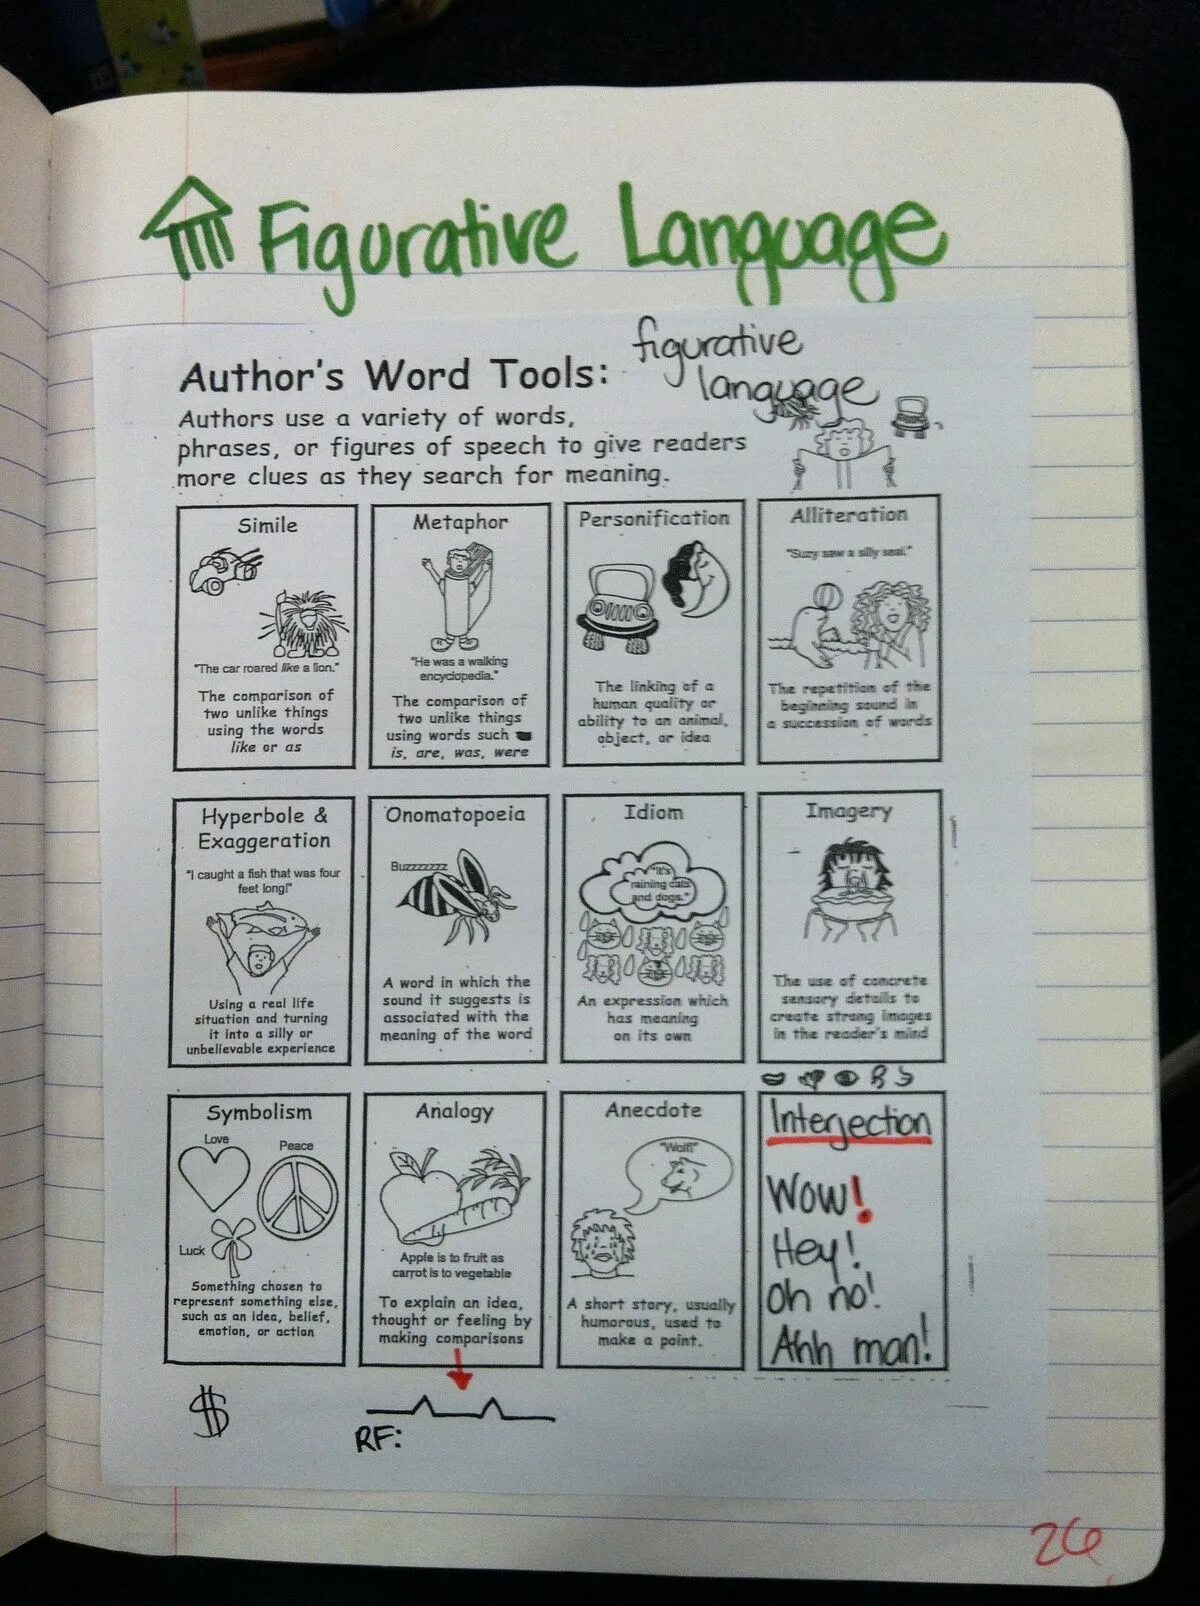 Figurative Language
Author's Word Tools: figurative
language
Authors use a variety of words,
phrases, or figures of speech to give readers
more clues as they search for meaning.
Simile
"The car roared like a lion."
The comparison of
two unlike things
using the words
like or as
Metaphor
"He was a walking
encyclopedia."
The comparison of
two unlike things
using words such
is, are, was, were
Personification
The linking of a
human quality or
ability to an animal,
object, or idea
Alliteration
"Suzy saw a silly seal."
The repetition of the
beginning sound in
a succession of words
Hyperbole &
Exaggeration
"I caught a fish that was four
feet long!"
Using a real life
situation and turning
it into a silly or
unbelievable experience
Onomatopoeia
Buzzzzzzz
A word in which the
sound it suggests is
associated with the
meaning of the word
Idiom
"It's
raining cats
and dogs."
An expression which
has meaning
on its own
Imagery
The use of concrete
sensory details to
create strong images
in the reader's mind
Symbolism
Love
Peace
Luck
Something chosen to
represent something else,
such as an idea, belief,
emotion, or action
Analogy
Apple is to fruit as
carrot is to vegetable
To explain an idea,
thought or feeling by
making comparisons
Anecdote
"Wolf!"
A short story, usually
humorous, used to
make a point.
Interjection
Wow!
Hey!
Oh no!
Ahh man!
$
RF:
26